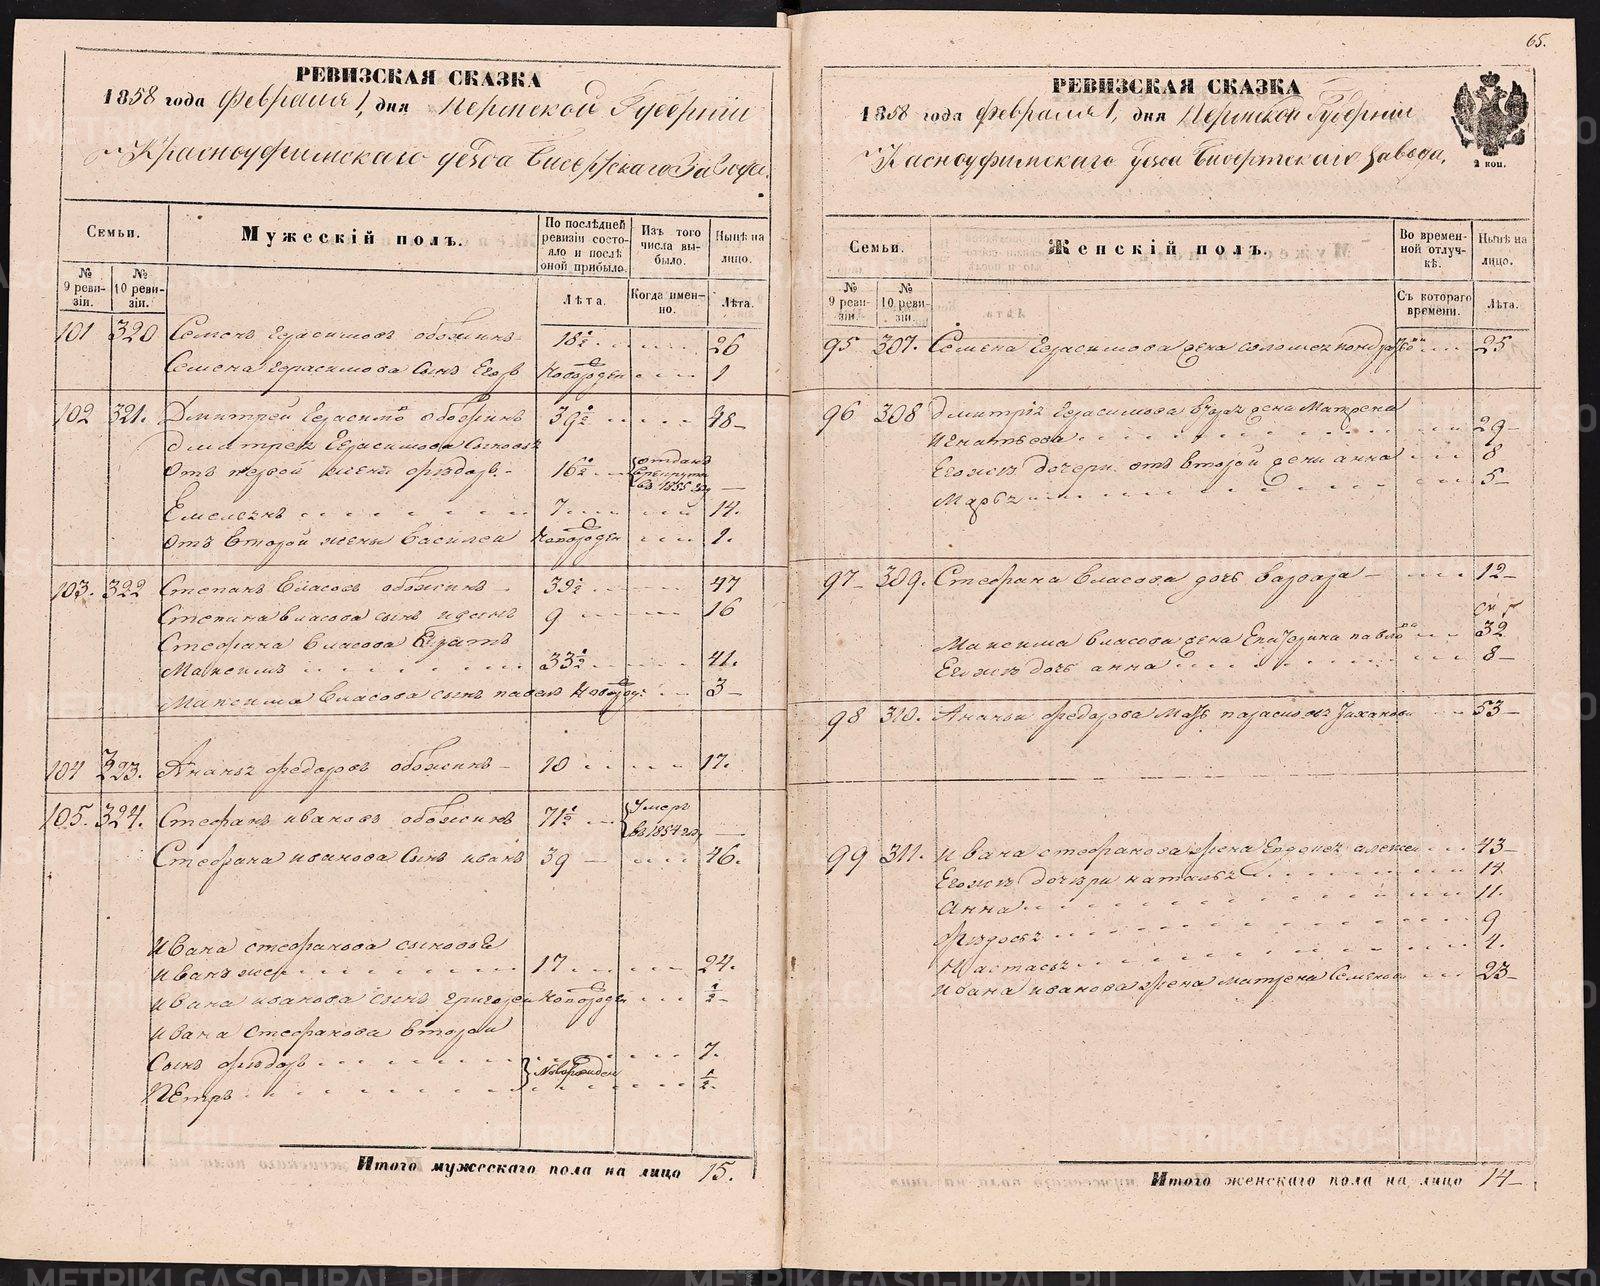 РЕВИЗСКАЯ СКАЗКА
1858 года февраля 1, дня Пермской Губернии
Красноуфимскаго уезда Бисертскаго Завода.
Семьи.
Мужескій полъ.
По послѣдней ревизіи состояло и послѣ оной прибыло.
Изъ того числа выбыло.
Нынѣ на лицо.
№ 9 ревизіи.
№ 10 ревизіи.
Лѣта.
Когда именно.
Лѣта.
101 320 Семенъ Герасимовъ обожинъ 18½ 26
Семена Герасимова сынъ Егоръ новорожден 1
102 321. Дмитрей Герасимо обожинъ 39½ 48
Дмитрея Герасимова сыновья
отъ первой жены Фёдоръ 16½ отданъ в рекруты въ 1855 году
Емельянъ 7 14.
отъ второй жены Василей новорожден 1.
103. 322 Степанъ Власовъ обожинъ 39½ 47
Степана власова сынъ 9 16
Стефана Власова братъ
Максимъ 33½ 41.
Максима Власова сынъ павелъ новорож. 3
104 323. Ананья федоровъ обожинъ 10 17.
105. 324. Стефанъ ивановъ обожинъ 71½ Умеръ въ 1854 году
Стефана иванова сынъ иванъ 39 46.
Ивана стефанова сыновья
иванъ же 17 24.
ивана иванова сынъ григорей новорожден ½
ивана Стефанова второй
сынъ фёдоръ 7.
Петръ новорожден ½
Итого мужескаго пола на лицо 15.
65.
РЕВИЗСКАЯ СКАЗКА
1858 года февраля 1, дня Пермской Губернии
Красноуфимскаго уезда Бисертскаго Завода,
2 коп.
Семьи.
Женскій полъ.
Во временной отлучкѣ.
Нынѣ на лицо.
№ 9 ревизіи.
№ 10 ревизіи.
Съ котораго времени.
Лѣта.
95 307. Семена Герасимова жена соломея 25
96 308 Дмитрія Герасимова вторая жена Матрена
Игнатьева 29
Егожъ дочери отъ второй жены анна 8
Марья 5
97 309. Стефана Власова дочь варвара 12
Максима Власова жена Екатерина павло 32
Егожъ дочь анна 8
98 310. Ананьи федорова мать 53
99 311. Ивана стефанова жена 43
Егожъ дочери наталья 14
Анна 11.
Федосья 9
Настасья 4.
Ивана иванова жена матрена Семенова 23
Итого женскаго пола на лицо 14
METRIKI.GASO-URAL.RU